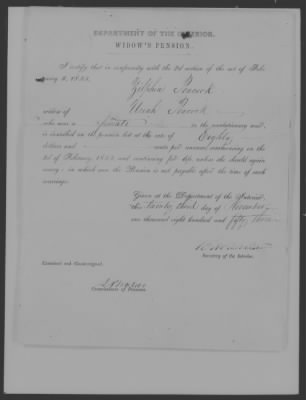 DEPARTMENT OF THE INTERIOR.
WIDOW'S PENSION.
I certify that in conformity with the 2d section of the act of Feb-
ruary 3, 1853,
Zilphia Peacock
widow of Uriah Peacock
who was a private in the revolutionary war,
is inscribed on the pension list at the rate of Eighty
dollars and cents per annum commencing on the
3d of February, 1853, and continuing for life, unless she should again
marry; in which case the Pension is not payable after the time of such
marriage.
Given at the Department of the Interior,
this twenty third day of November
one thousand eight hundred and fifty three
Secretary of the Interior.
Examined and Countersigned.
Commissioner of Pensions.